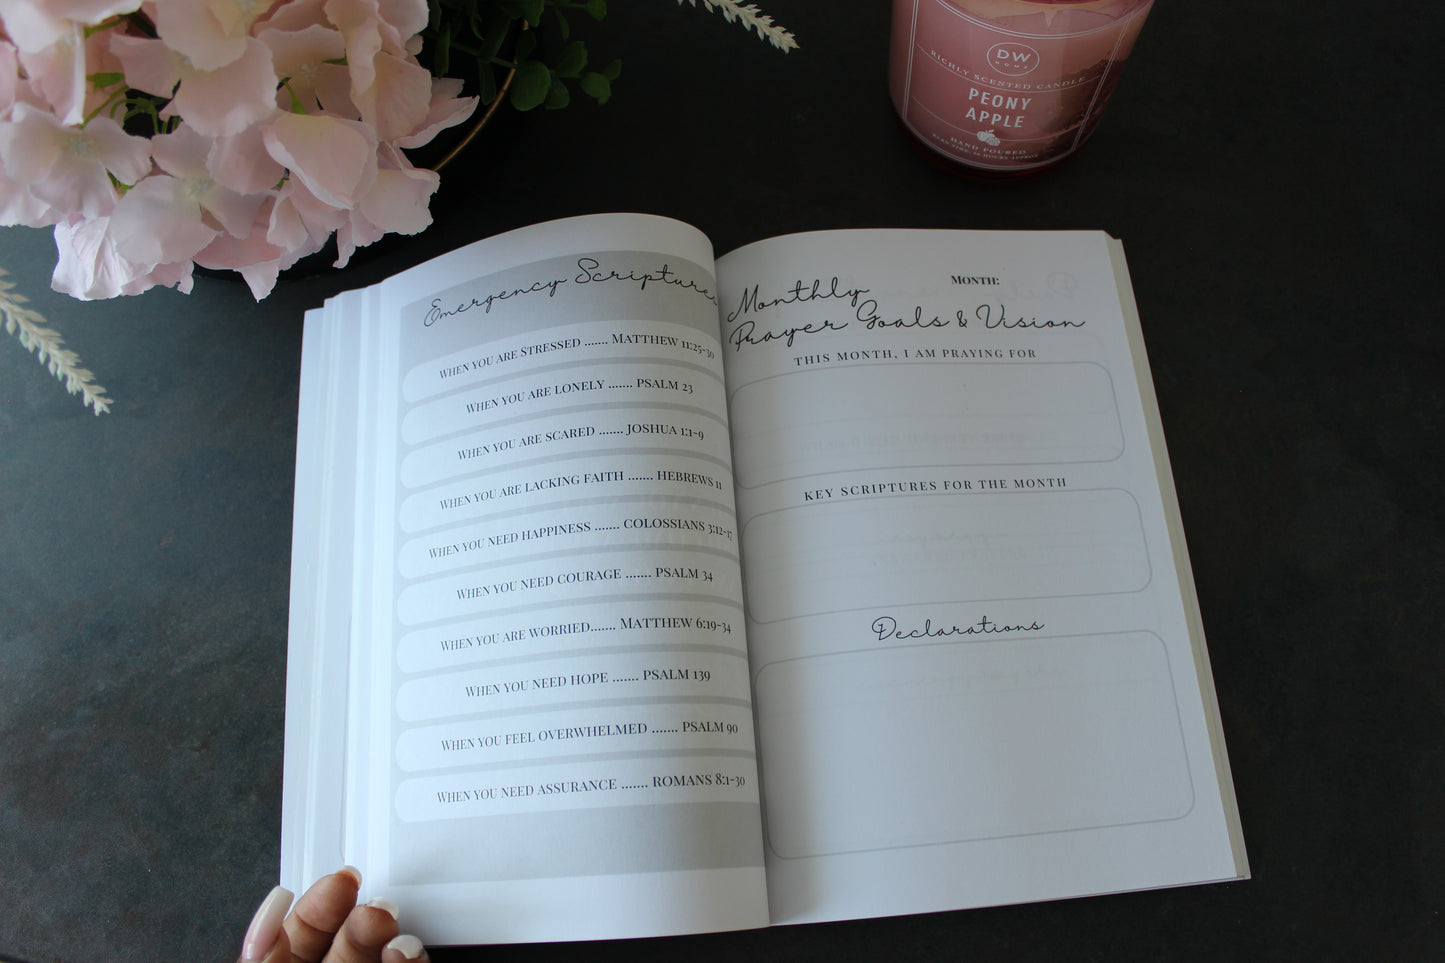 DW
HOME
RICHLY SCENTED CANDLE
PEONY
APPLE
HAND POURED
Emergency Scriptures
When you are stressed ....... Matthew 11:25-30
When you are lonely ....... Psalm 23
When you are scared ....... Joshua 1:1-9
When you are lacking faith ....... Hebrews 11
When you need happiness ....... Colossians 3:12-17
When you need courage ....... Psalm 34
When you are worried....... Matthew 6:19-34
When you need hope ....... Psalm 139
When you feel overwhelmed ....... Psalm 90
When you need assurance ....... Romans 8:1-30
Month:
Monthly
Prayer Goals & Vision
THIS MONTH, I AM PRAYING FOR
KEY SCRIPTURES FOR THE MONTH
Declarations